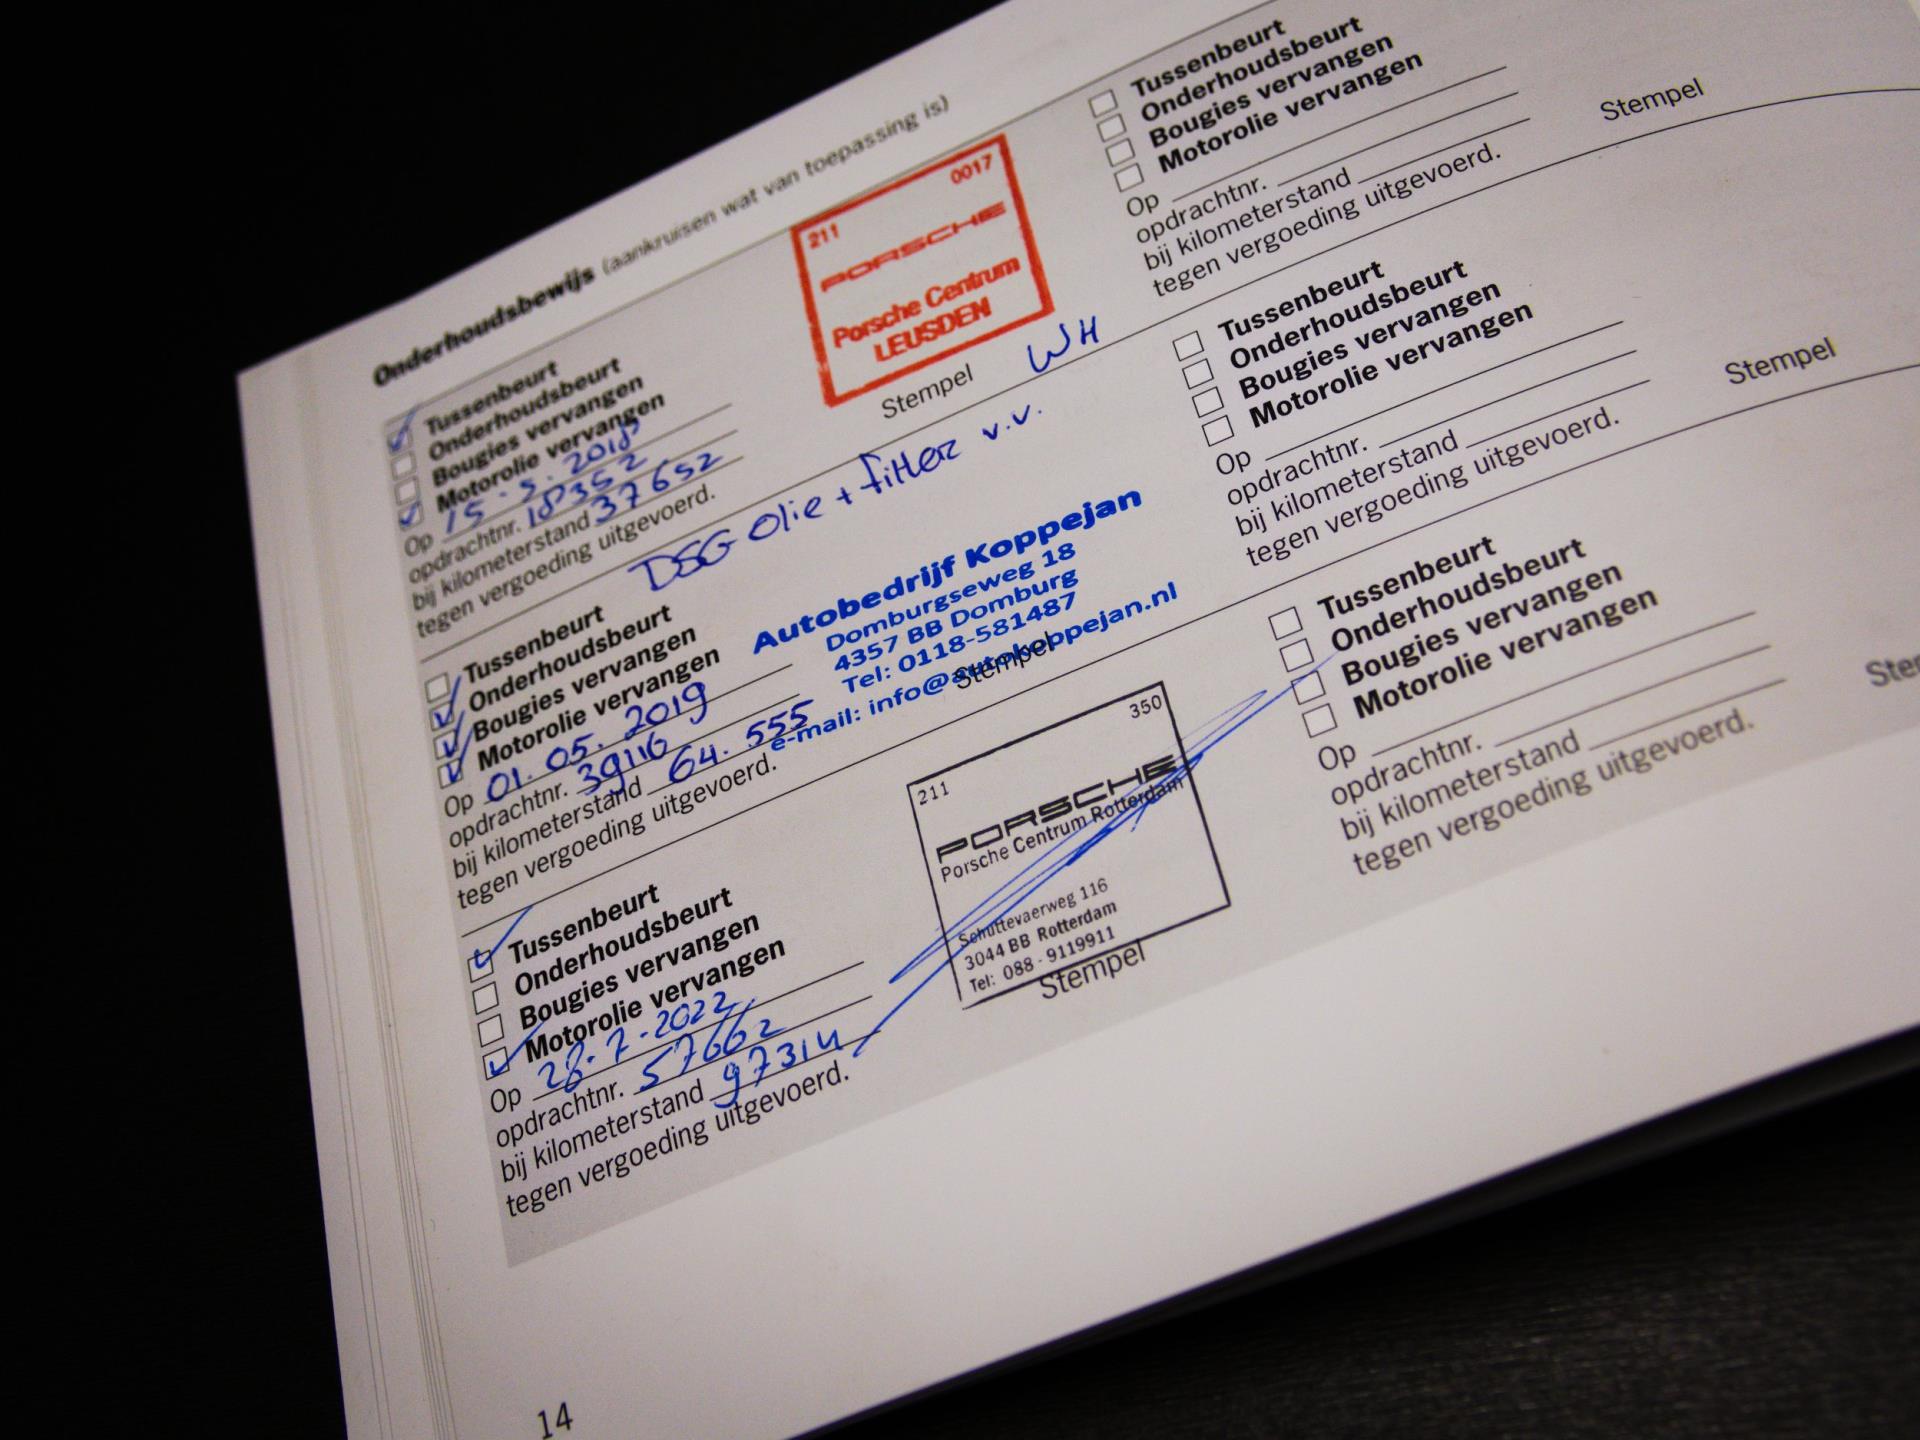 Onderhoudsbewijs (aankruisen wat van toepassing is)
Tussenbeurt
Onderhoudsbeurt
Bougies vervangen
Motorolie vervangen
Op 15-5-2018
opdrachtnr. 18352
bij kilometerstand 37652
tegen vergoeding uitgevoerd.
211 0017
PORSCHE
Porsche Centrum
LEUSDEN
Stempel
WH
DSG olie + filter v.v.
Tussenbeurt
Onderhoudsbeurt
Bougies vervangen
Motorolie vervangen
Op 01.05.2019
opdrachtnr. 39116
bij kilometerstand 64.555
tegen vergoeding uitgevoerd.
Autobedrijf Koppejan
Domburgseweg 18
4357 BB Domburg
Tel: 0118-581487
e-mail: info@autokoppejan.nl
Stempel
Tussenbeurt
Onderhoudsbeurt
Bougies vervangen
Motorolie vervangen
Op 28-7-2022
opdrachtnr. 57662
bij kilometerstand 97314
tegen vergoeding uitgevoerd.
211 350
PORSCHE
Porsche Centrum Rotterdam
Schuttevaerweg 116
3044 BB Rotterdam
Tel: 088-9119911
Stempel
Tussenbeurt
Onderhoudsbeurt
Bougies vervangen
Motorolie vervangen
Op
opdrachtnr.
bij kilometerstand
tegen vergoeding uitgevoerd.
Stempel
Tussenbeurt
Onderhoudsbeurt
Bougies vervangen
Motorolie vervangen
Op
opdrachtnr.
bij kilometerstand
tegen vergoeding uitgevoerd.
Stempel
Tussenbeurt
Onderhoudsbeurt
Bougies vervangen
Motorolie vervangen
Op
opdrachtnr.
bij kilometerstand
tegen vergoeding uitgevoerd.
14